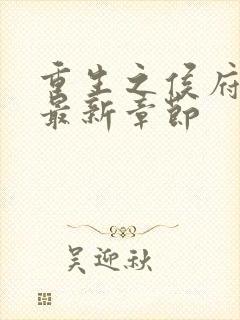 重生之侯府
最新章节
吴迎秋